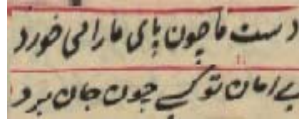 دست ما چون پای ما را می خورد
بے امان تو کسے چون جان برد